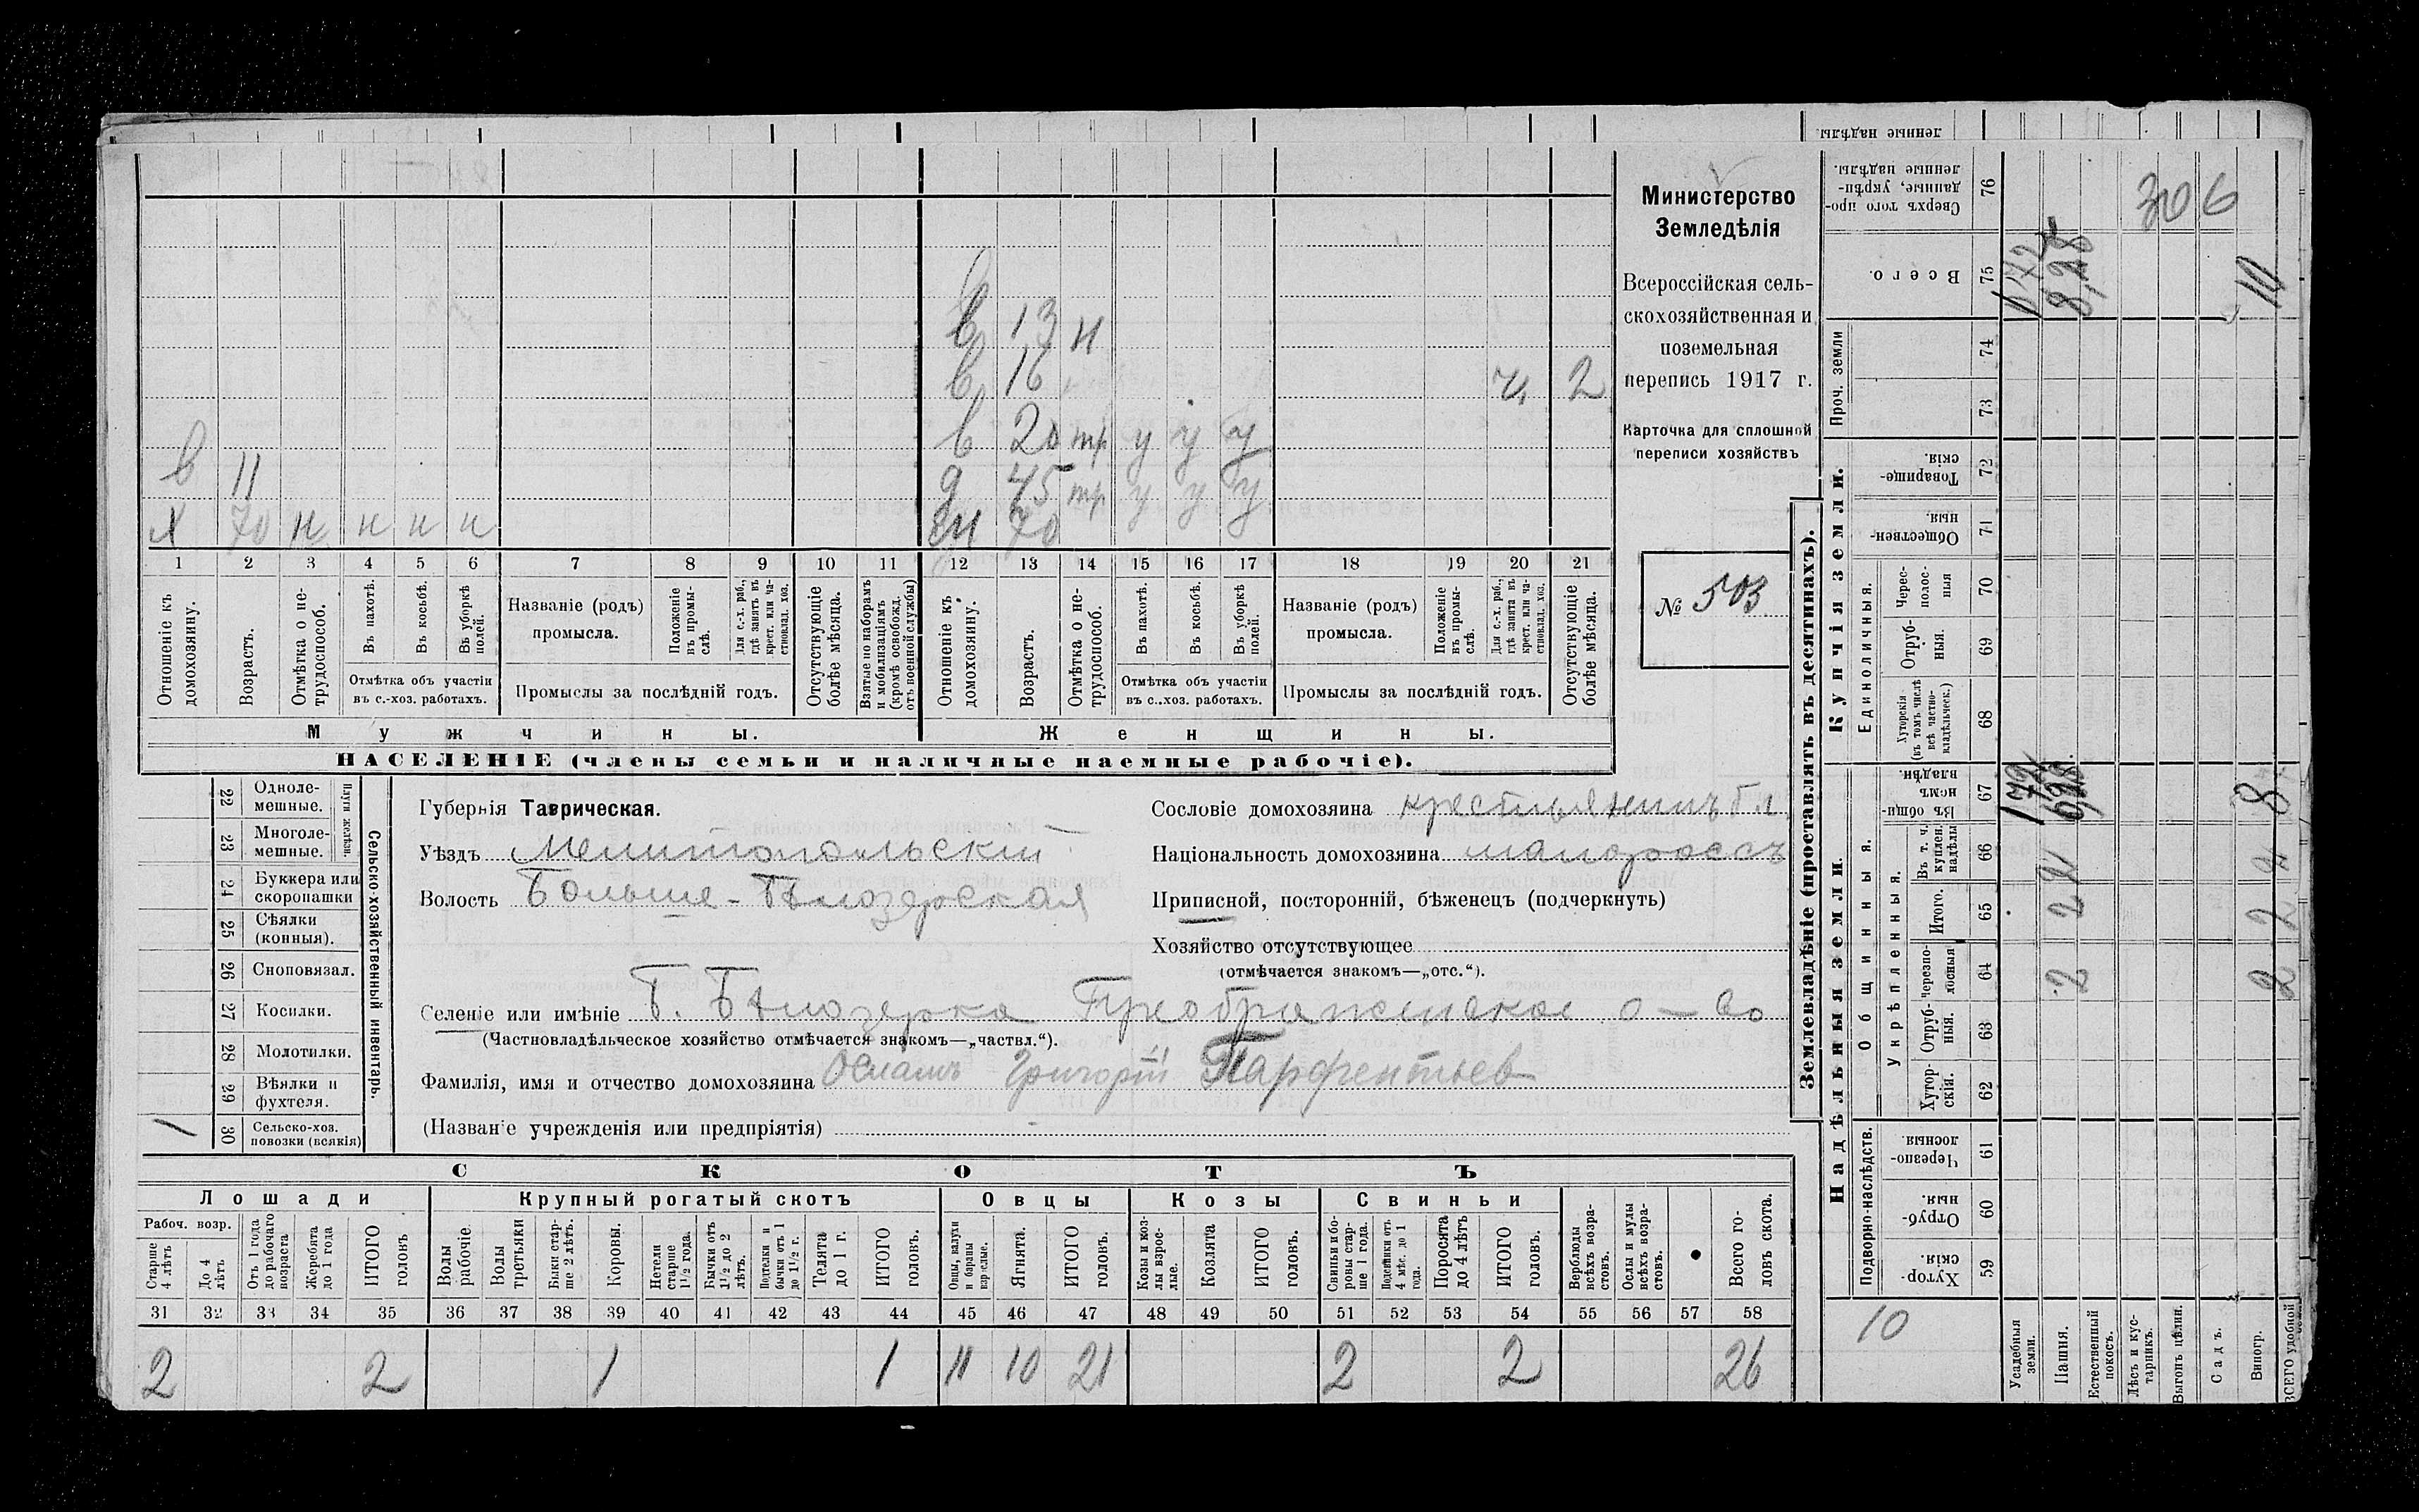 Министерство
Земледѣлія
Всероссійская сель-
скохозяйственная и
поземельная
перепись 1917 г.
Карточка для сплошной
переписи хозяйствъ
№ 503
в 13 н
в 16 2
в 20 тр у у у
в 11 д 45 тр у у у
х 70 н н н н 70
1 2 3 4 5 6 7 8 9 10 11 12 13 14 15 16 17 18 19 20 21
Отношеніе къ домохозяину.
Возрастъ.
Отмѣтка о не-трудоспособ.
Въ пахотѣ.
Въ косьбѣ.
Въ уборкѣ полей.
Отмѣтка объ участіи
въ с.-хоз. работахъ.
Названіе (родъ)
промысла.
Положеніе въ промы-слѣ.
Для с.-х. раб., гдѣ занятъ въ крест. или ча-стновлад. хоз.
Промыслы за послѣдній годъ.
Отсутствующіе болѣе мѣсяца.
Взятые по наборамъ и мобилизаціямъ (кромѣ освобожд. отъ военной службы)
Отношеніе къ домохозяину.
Возрастъ.
Отмѣтка о не-трудоспособ.
Въ пахотѣ.
Въ косьбѣ.
Въ уборкѣ полей.
Отмѣтка объ участіи
въ с.-хоз. работахъ.
Названіе (родъ)
промысла.
Положеніе въ промы-слѣ.
Для с.-х. раб., гдѣ занята въ крест. или ча-стновлад. хоз.
Промыслы за послѣдній годъ.
Отсутствующіе болѣе мѣсяца.
Мужчины. Женщины.
НАСЕЛЕНІЕ (члены семьи и наличные наемные рабочіе).
22 Одноле-мешные.
23 Многоле-мешные.
Плуги желѣзн.
24 Буккера или скоропашки
25 Сѣялки (конныя).
26 Сноповязал.
27 Косилки.
28 Молотилки.
29 Вѣялки и фухтеля.
1 30 Сельско-хоз. повозки (всякія)
Сельско-хозяйственный инвентарь.
Губернія Таврическая.
Уѣздъ Мелитопольскій
Волость Больше-Бѣлозерская
Сословіе домохозяина крестьянинъ
Національность домохозяина малороссъ
Приписной, посторонній, бѣженецъ (подчеркнуть)
Хозяйство отсутствующее
(отмѣчается знакомъ—„отс.“).
Селеніе или имѣніе Б. Бѣлозерка Преображенское о-во
(Частновладѣльческое хозяйство отмѣчается знакомъ—„частвл.“).
Фамилія, имя и отчество домохозяина Григорій Парфентьев
(Названіе учрежденія или предпріятія)
СКОТЪ
Лошади Крупный рогатый скотъ Овцы Козы Свиньи
Рабоч. возр.
Старше 4 лѣтъ
До 4 лѣтъ
Отъ 1 года до рабочаго возраста
Жеребята до 1 года
ИТОГО головъ
Волы рабочіе
Волы третьяки
Быки стар-ше 2 лѣтъ.
Коровы.
Нетели старше 1½ года.
Бычки отъ 1½ до 2 лѣтъ.
Подтелки и бычки отъ 1 до 1½ г.
Телята до 1 г.
ИТОГО головъ.
Овцы, валухи и бараны взрослые.
Ягнята.
ИТОГО головъ.
Козы и коз-лы взрос-лые.
Козлята
ИТОГО головъ.
Свиньи и бо-ровы стар-ше 1 года.
Подсвинки отъ 4 мѣс. до 1 года.
Поросята до 4 лѣтъ
ИТОГО головъ.
Верблюды всѣхъ возра-стовъ.
Ослы и мулы всѣхъ возра-стовъ.
Всего го-ловъ скота.
31 32 33 34 35 36 37 38 39 40 41 42 43 44 45 46 47 48 49 50 51 52 53 54 55 56 57 58
2 2 1 1 11 10 21 2 2 26
Землевладѣніе (проставлять въ десятинахъ).
Сверхъ того про-данные, укрѣп-ленные надѣлы. 76 306
Всего. 75 8,28 10
Проч. земли 74 73
Купчія земли.
Товарище-скія. 72
Обществен-ныя. 71
Единоличныя.
Черес-полос-ныя 70
Отруб-ныя. 69
Хуторскія (въ томъ числѣ всѣ частно-владѣльческ.) 68
Надѣльныя земли.
Общинныя.
Въ общи-номъ владѣн. 67 8
Укрѣпленныя.
Въ т. ч. куплен. надѣлы 66
Итого. 65 2 2
Черезпо-лосныя 64 2 2
Отруб-ныя. 63
Хутор-скія. 62
Подворно-наслѣдств.
Черезпо-лосныя 61
Отруб-ныя. 60
Хутор-скія. 59
10
Усадебныя земли.
Пашня.
Естественный покосъ.
Лѣсъ и кус-тарникъ.
Выгонъ цѣлин.
Садъ.
Виногр.
ВСЕГО удобной